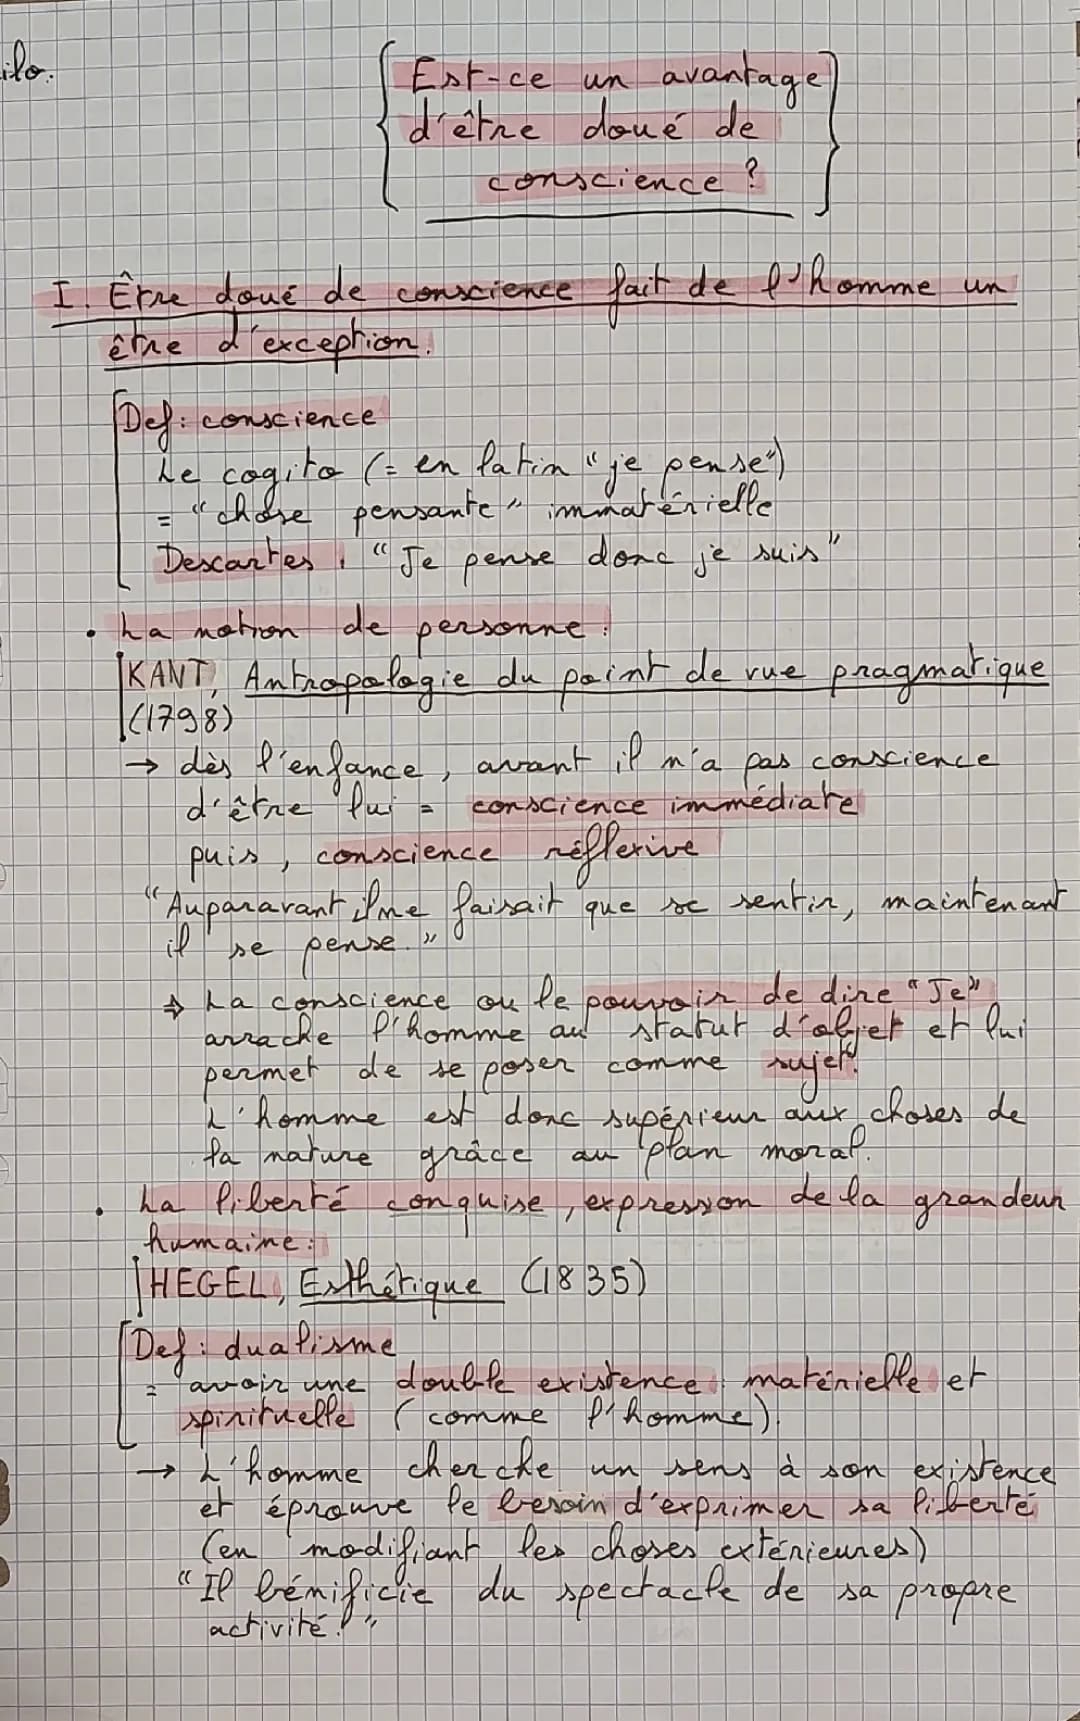 ilo.
Est-ce un avantage
d'être doué de
conscience ?
I. Être doué de conscience fait de l'homme un
être d'exception.
Def : conscience
Le cogito (= en latin "je pense")
= "chose pensante" immatérielle
Descartes : "Je pense donc je suis"
• La notion de personne :
KANT, Antropologie du point de vue pragmatique
(1798)
→ dès l'enfance, avant il n'a pas conscience
d'être lui = conscience immédiate
puis, conscience réflexive
"Auparavant il ne faisait que se sentir, maintenant
il se pense."
⇒ La conscience ou le pouvoir de dire "Je"
arrache l'homme au statut d'objet et lui
permet de se poser comme sujet.
L'homme est donc supérieur aux choses de
la nature grâce au plan moral.
• La liberté conquise, expression de la grandeur
humaine :
HEGEL, Esthétique (1835)
Def : dualisme
= avoir une double existence : matérielle et
spirituelle (comme l'homme).
→ L'homme cherche un sens à son existence
et éprouve le besoin d'exprimer sa liberté
(en modifiant les choses extérieures)
"Il bénificie du spectacle de sa propre
activité."